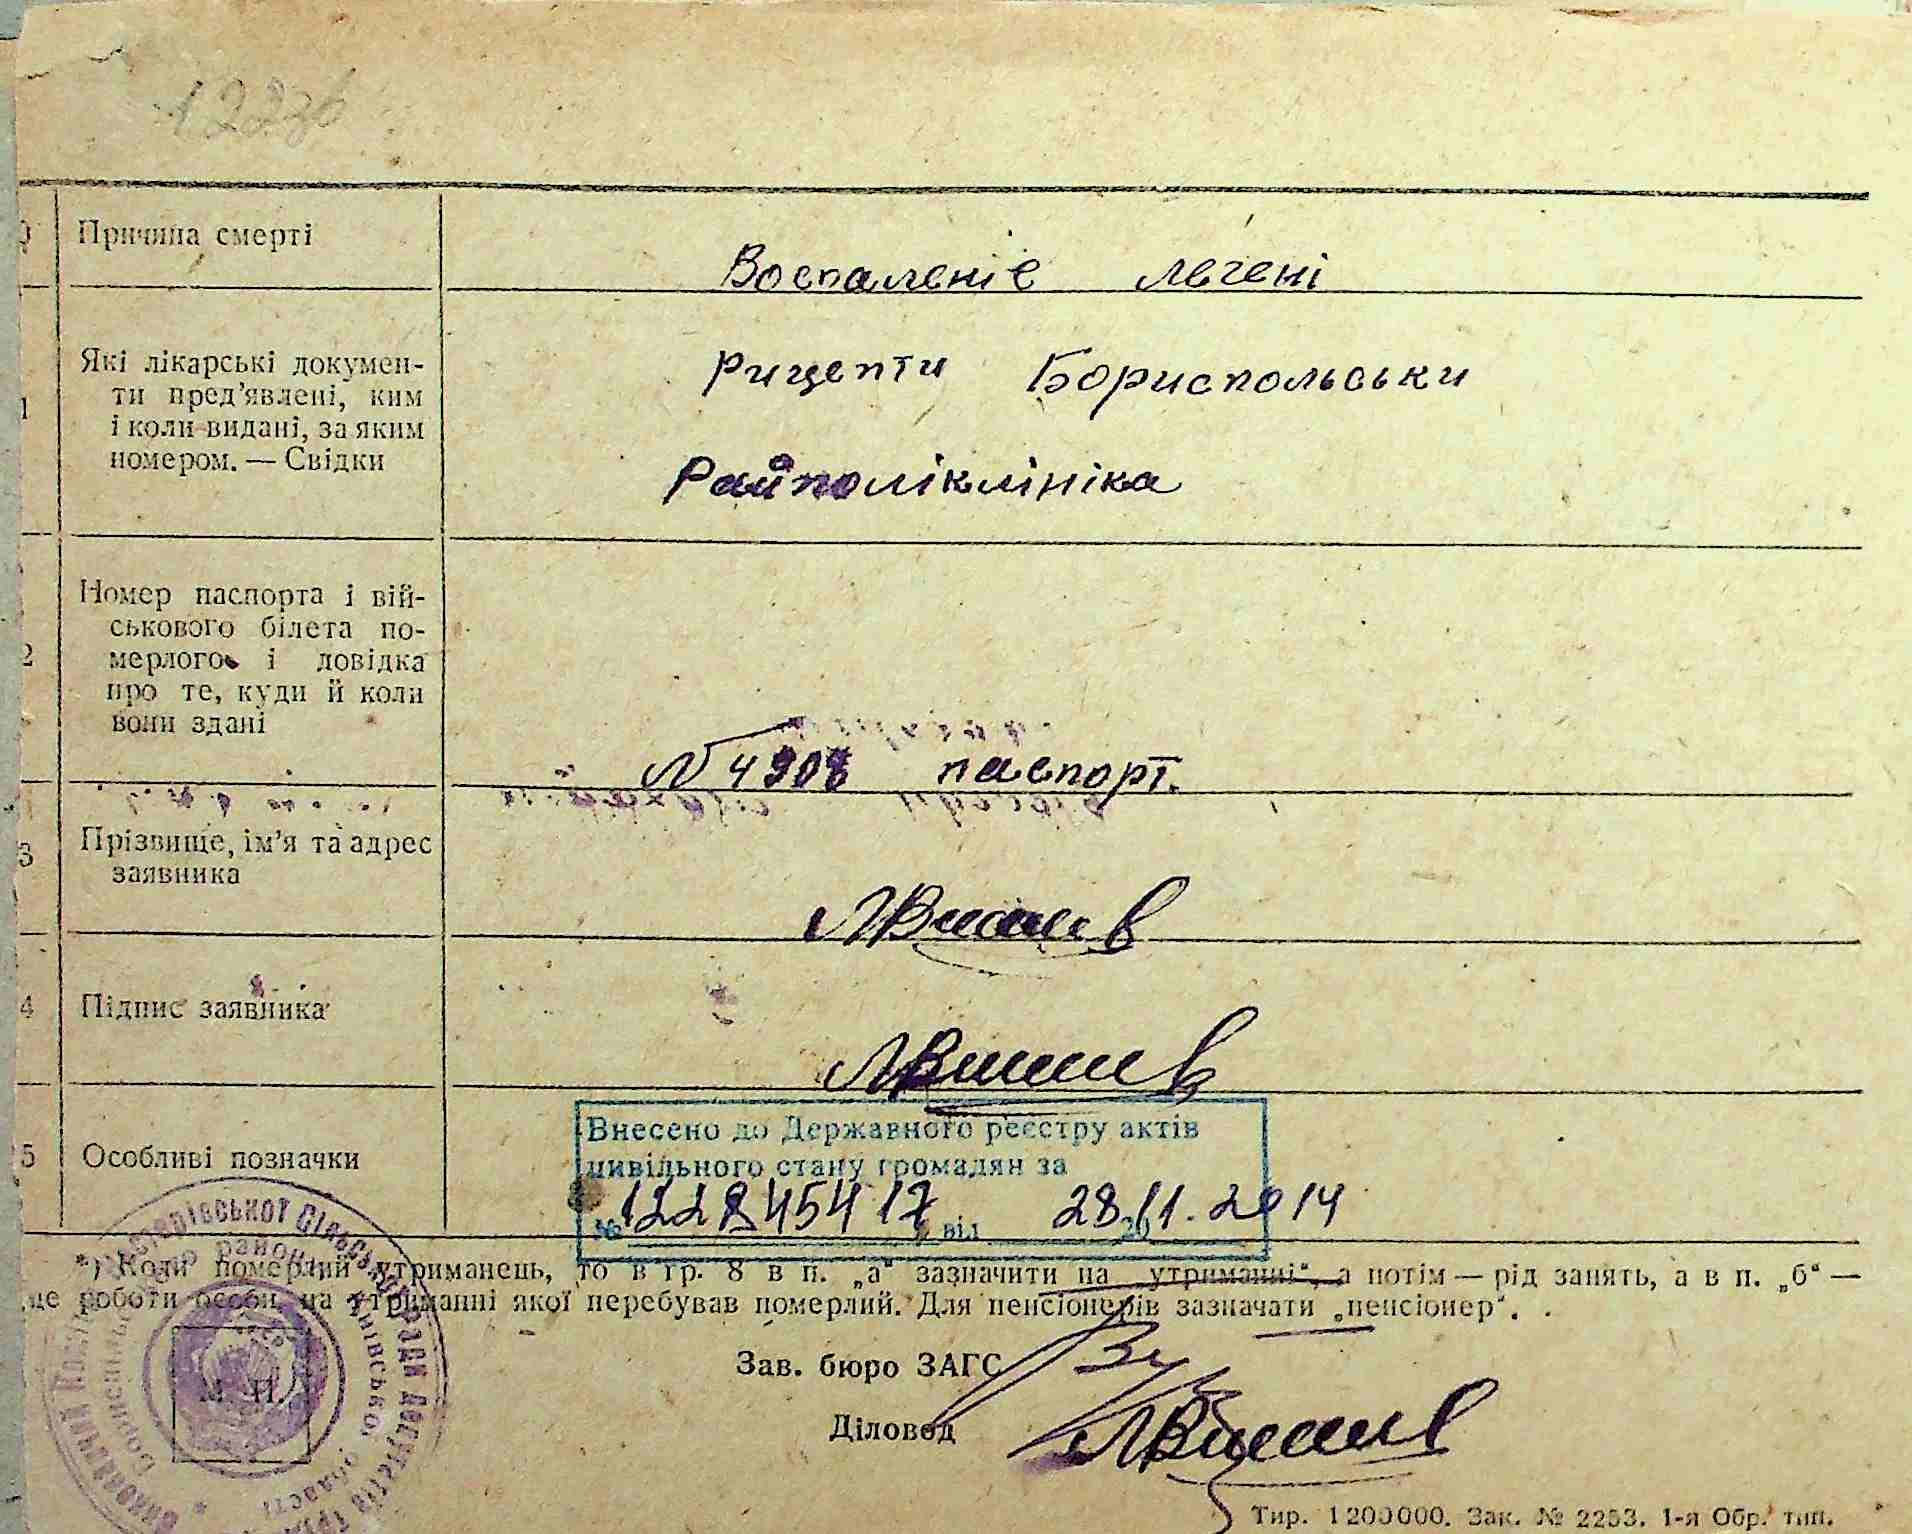 Причина смерті
Воспаленіє легені
Які лікарські докумен-
ти пред’явлені, ким
і коли видані, за яким
номером. — Свідки
Рицепти Бориспольськи
Райполіклініка
Номер паспорта і вій-
ськового білета по-
мерлого і довідка
про те, куди й коли
вони здані
№ 4908 паспорт.
3
Прізвище, ім’я та адрес
заявника
4
Підпис заявника
5
Особливі позначки
Внесено до Державного реєстру актів
цивільного стану громадян за
№ від 28.11.2014
*) Коли померлий утриманець, то в гр. 8 в п. „а“ зазначити на „утриманні“, а потім — рід занять, а в п. „б“ —
це роботи особи, на утриманні якої перебував померлий. Для пенсіонерів зазначати „пенсіонер“.
Зав. бюро ЗАГС
Діловод
М. П.
Тир. 1200000. Зак. № 2253. 1-я Обр. тип.